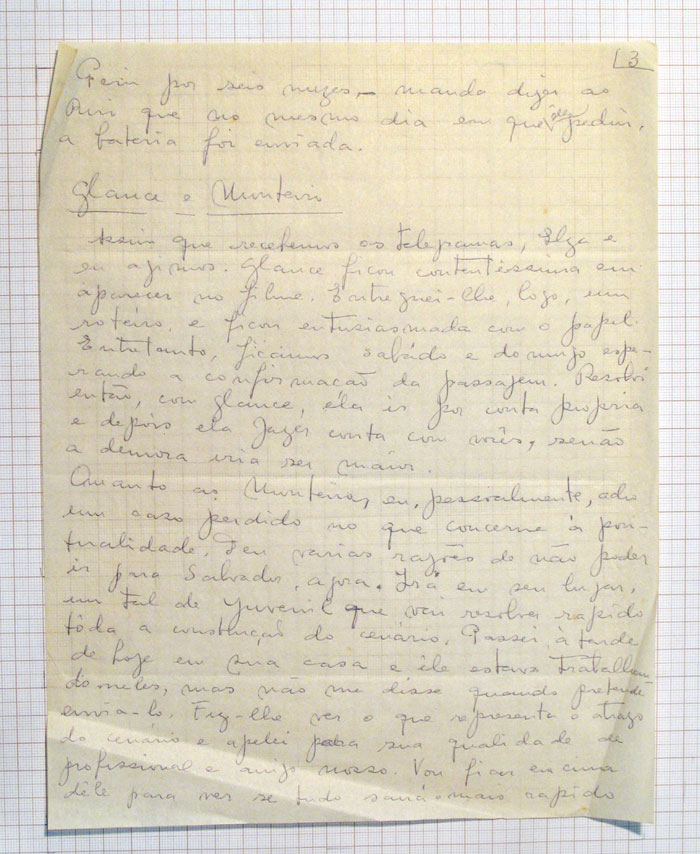 3
por seis mezes, mando dizer ao
Rui que no mesmo dia em que ele pediu,
a bateria foi enviada.
Glauce e Monteiro
Assim que recebemos os telegramas, Elza e
eu agimos. Glauce ficou contentíssima em
aparecer no filme. Entreguei-lhe, logo, um
roteiro, e ficou entusiasmada com o papel.
Entretanto, ficámos sabádo e domingo espe-
rando a confirmacão da passagem. Resolvi
então, con Glauce, ela ir por conta propria
e depois ela fazer conta com vocês, senão
a demora iria ser maior.
Quanto ao Monteiro, eu, pessoalmente, acho
um caso perdido no que concerne à pon-
tualidade. Deu varias razões de não poder
ir pra Salvador, agora. Irá em seu lugar,
um tal de Juvenil que vai resolver rapido
tôda a construção do cenário. Passei a tarde
de hoje em sua casa e êle estava trabalhan-
do neles, mas não me disse quando pretende
envia-lo. Fiz-lhe ver o que representa o atrazo
do cenário e apelei para sua qualidade de
profissional e amigo nosso. Vou ficar en cima
dêle para ver se tudo sairá mais rapido